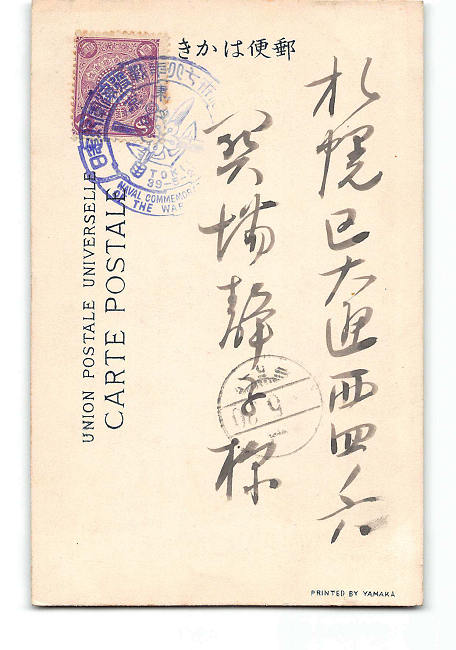 郵便はかき
札幌区大通西四ノ六
関場静子様
UNION POSTALE UNIVERSELLE
CARTE POSTALE
NAVAL
THE WAR
PRINTED BY YAMAKA